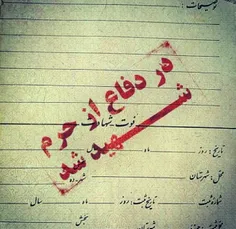 توضیحات :
فوت شهادت
در دفاع از حرم
شهید شد
تاریخ : روز ماه
محل : شهرستان
شماره ثبت تاریخ ثبت : روز ماه سال
شهرستان بخش